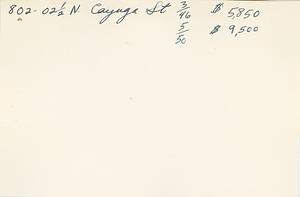 802-02½ N. Cayuga St 3/46 $ 5,850
5/50 $ 9,500